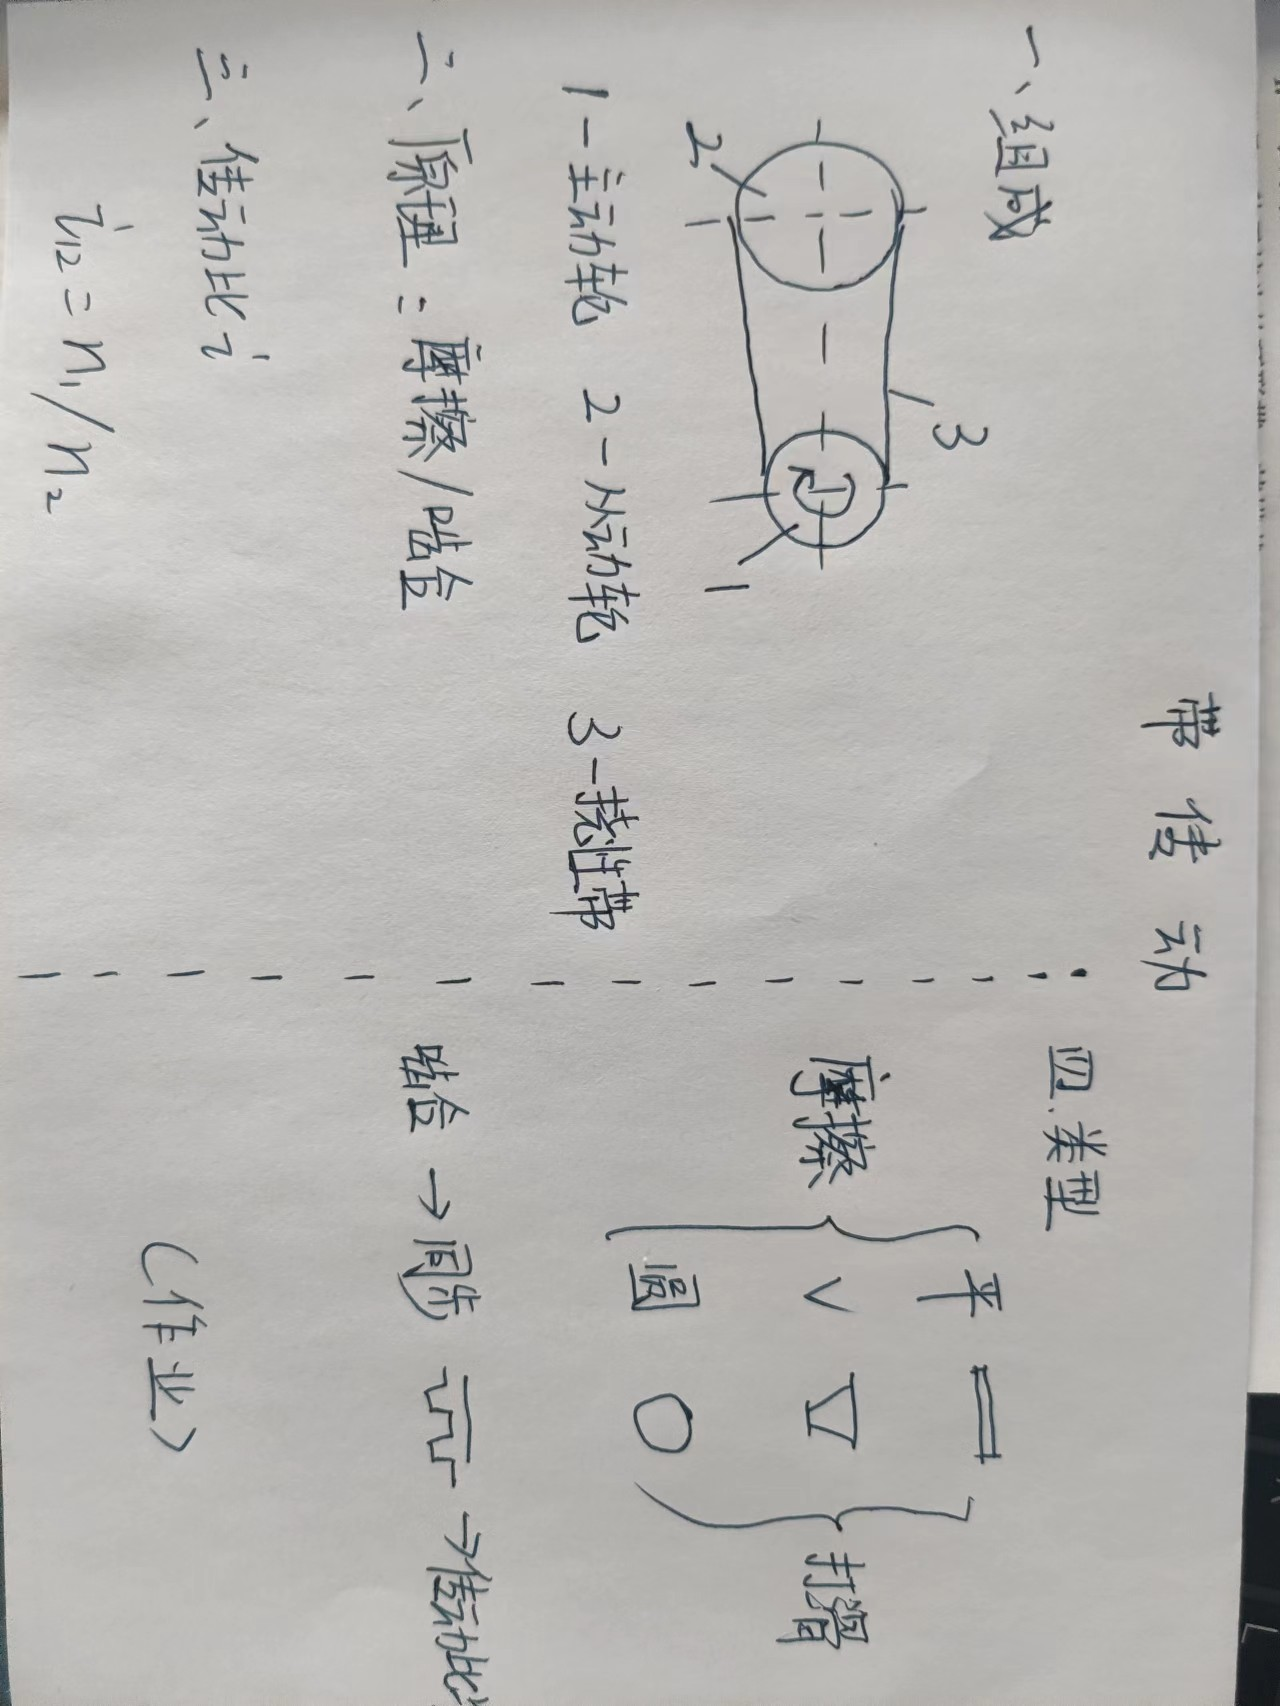 带传动
一、组成
3
2
1
1-主动轮 2-从动轮 3-挠性带
二、原理：摩擦/啮合
三、传动比i
i12=n1/n2
四、类型
摩擦
平
V
圆
打滑
啮合→同步 →传动比
（作业）